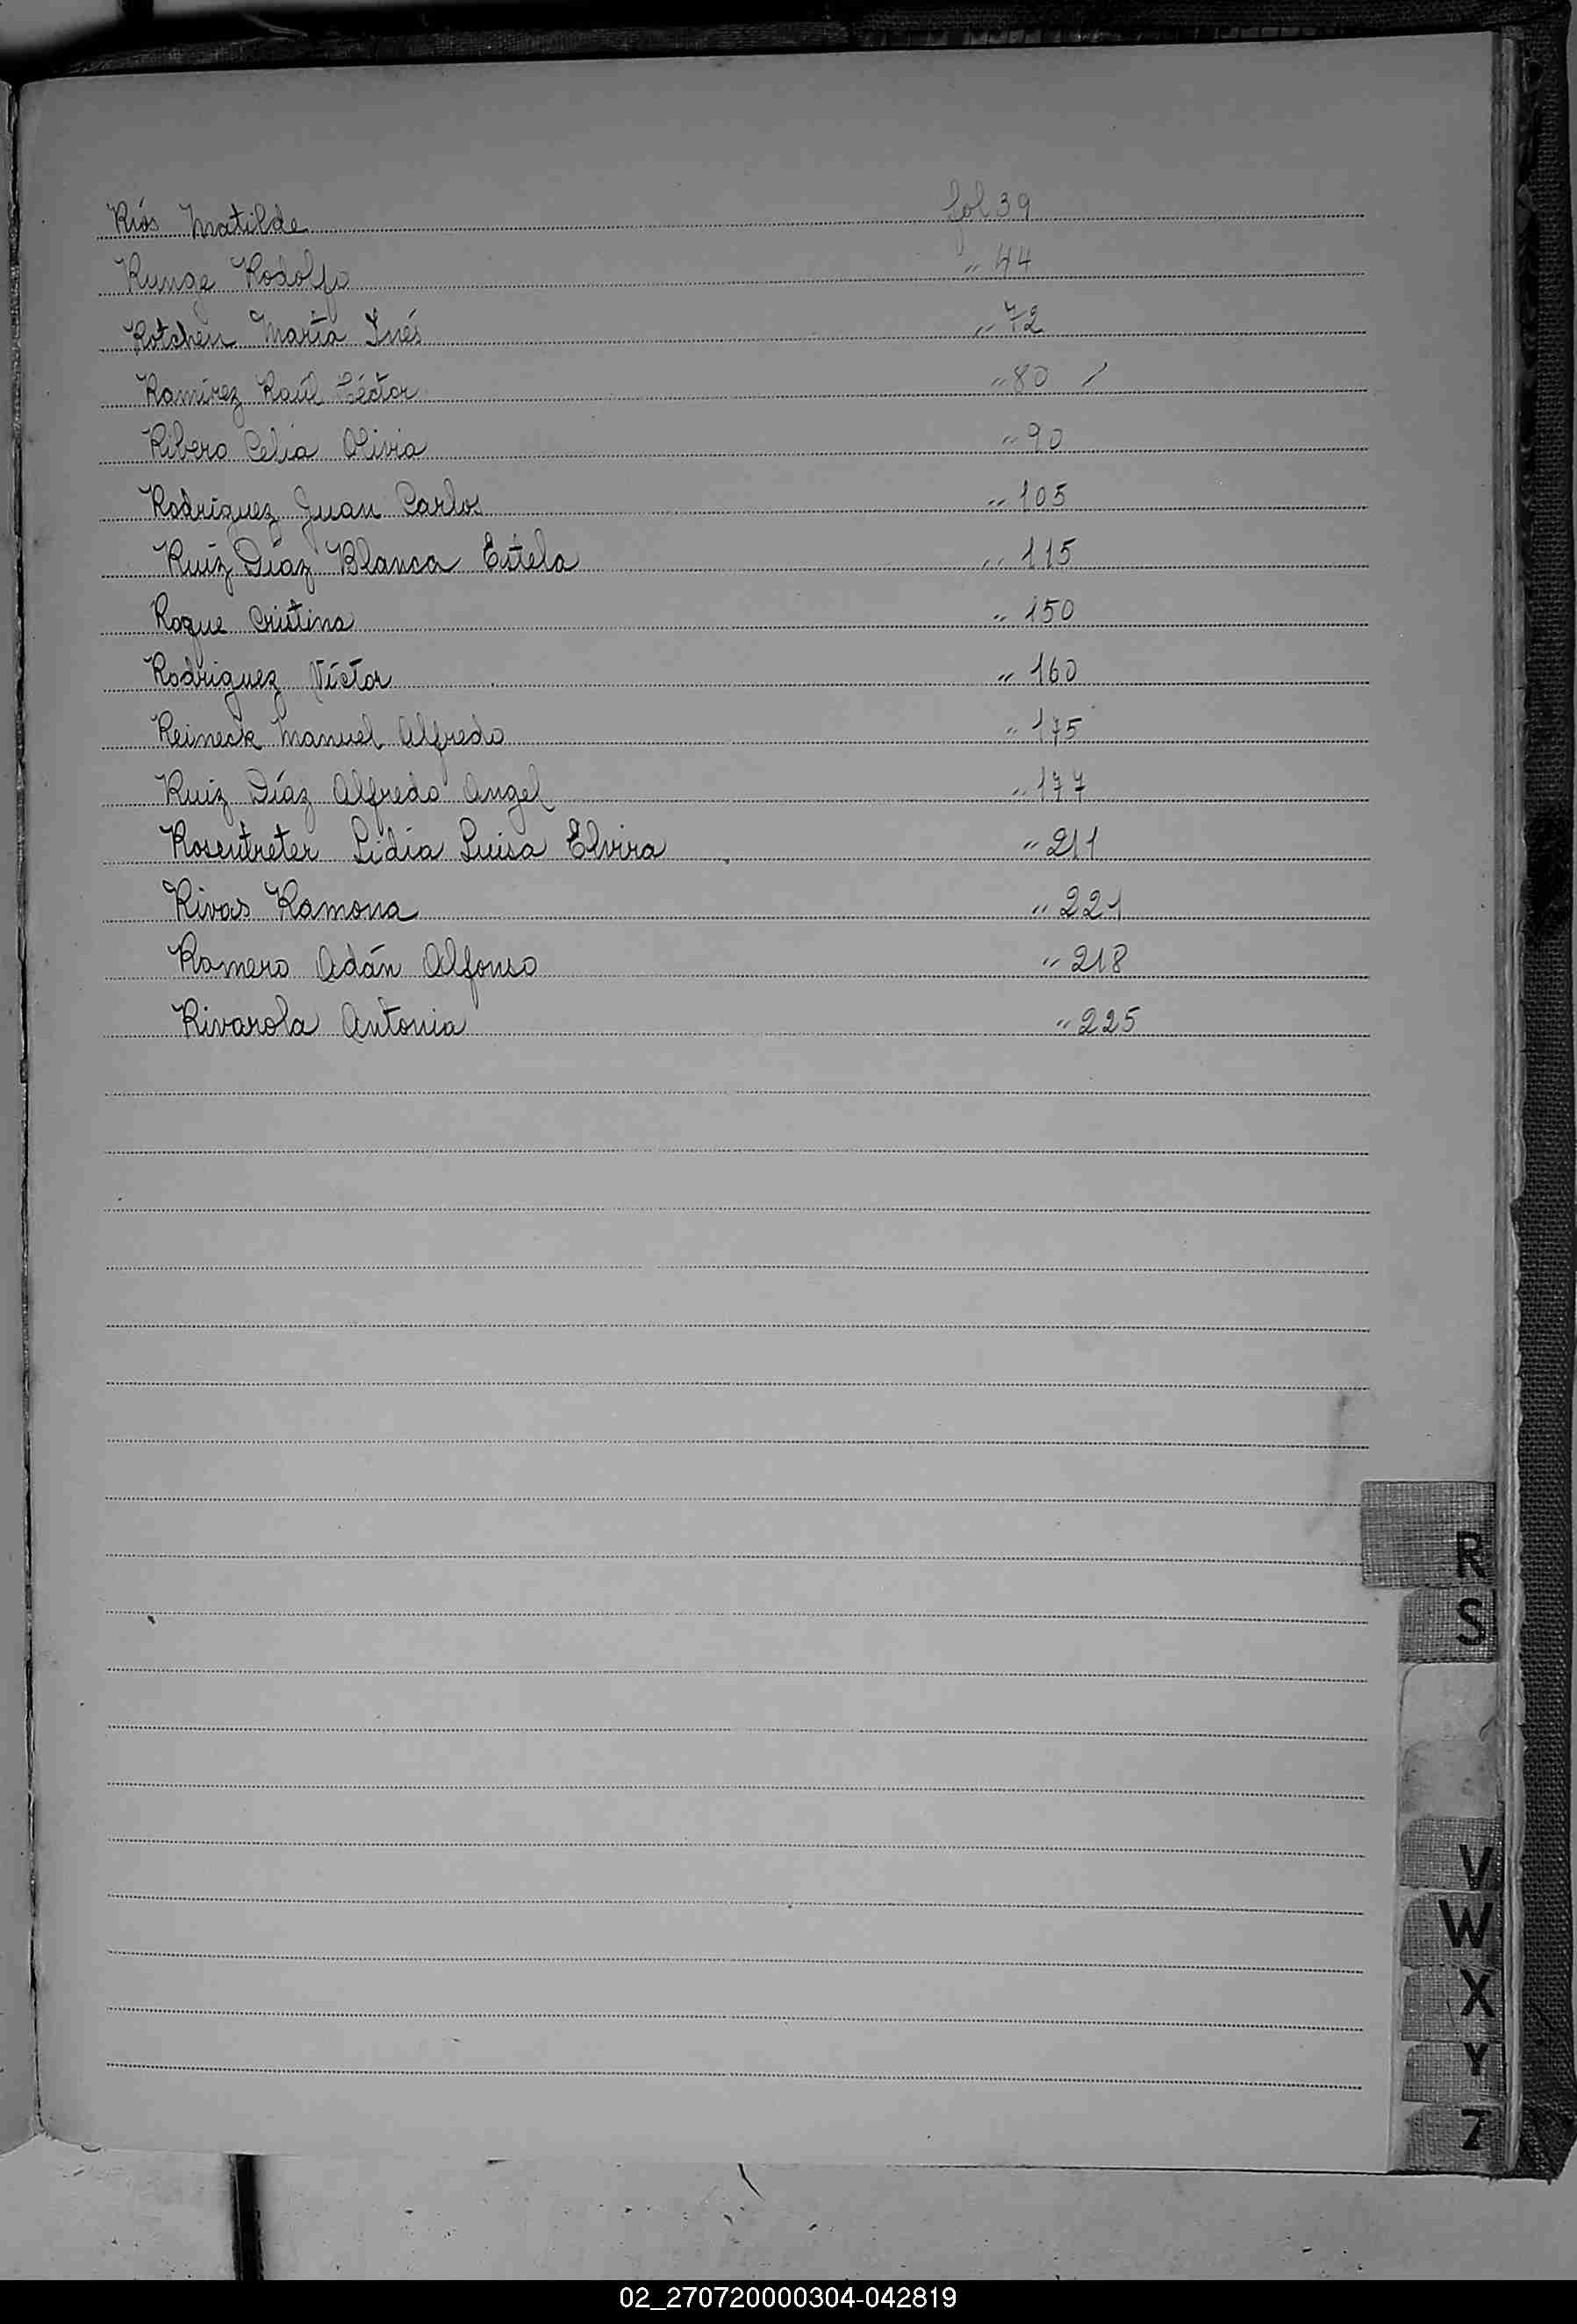 Ríos Matilde fol 39
Runge Rodolfo " 44
Rotchen María Inés " 72
Ramírez Raúl Héctor " 80 /
Ribero Celia Olivia " 90
Rodríguez Juan Carlos " 105
Ruíz Díaz Blanca Estela " 115
Roque Cristina " 150
Rodriguez Víctor " 160
Reineck Manuel Alfredo " 175
Ruiz Díaz Alfredo Angel " 177
Rosentreter Lidia Luisa Elvira " 211
Rivas Ramona " 221
Romero Adán Alfonso " 218
Rivarola Antonia " 225
R
S
V
W
X
Y
Z
02_270720000304-042819